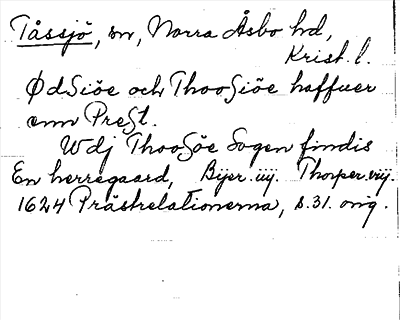 Tåssjö, sn, Norra Åsbo hd,
Krist. l.
ØdSiöe och ThooSiöe haffuer
enn PreSt.
Wdj ThooSöe Sogen findis
En herregaard, Bÿer. iiij. Thorper. viij.
1624 Prästrelationerna, s. 31. orig.